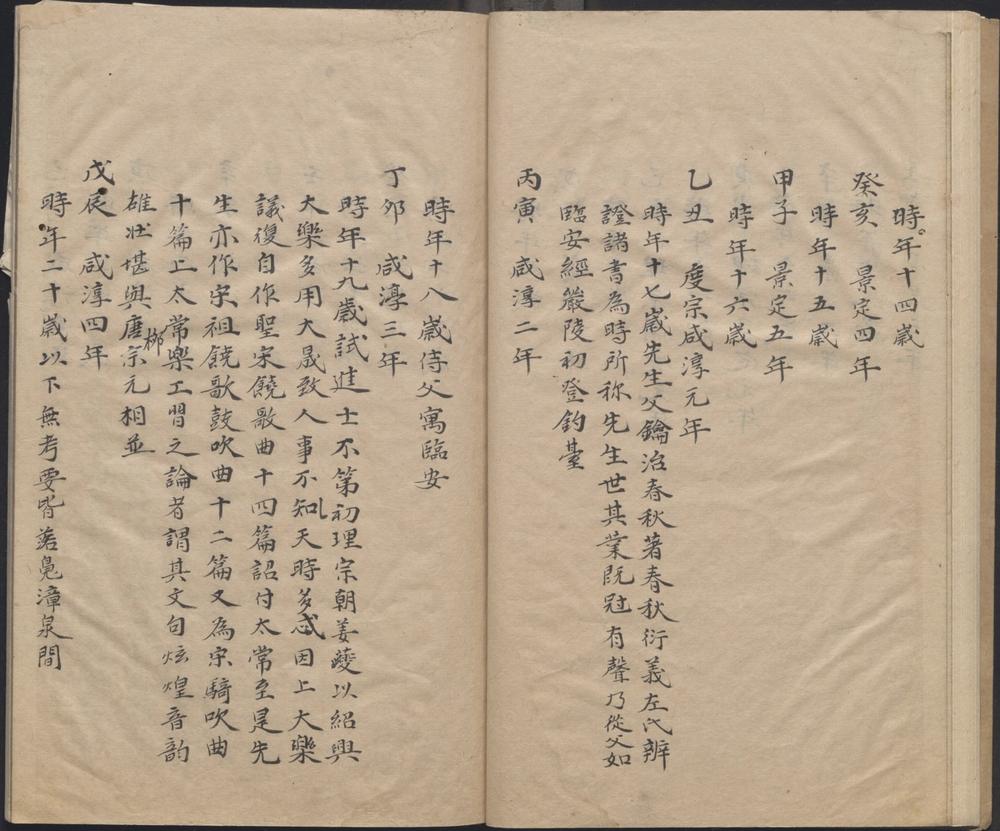 時年十四歲
癸亥 景定四年
時年十五歲
甲子 景定五年
時年十六歲
乙丑 度宗咸淳元年
時年十七歲先生父鑰治春秋著春秋衍義左氏辨
證諸書為時所称先生世其業既冠有聲乃從父如
臨安經嚴陵初登釣臺
丙寅 咸淳二年
時年十八歲侍父寓臨安
丁夘 咸淳三年
時年十九歲試進士不第初理宗朝姜夔以紹興
大樂多用大晟致人事不知天時多忒因上大樂
議復自作聖宋饒歌曲十四篇詔付太常至是先
生亦作宋祖饒歌鼓吹曲十二篇又為宋騎吹曲
十篇上太常樂工習之論者謂其文句炫煌音韵
雄壯堪與唐柳宗元相並
戊辰 咸淳四年
時年二十歲以下無考要皆盤鳧漳泉間